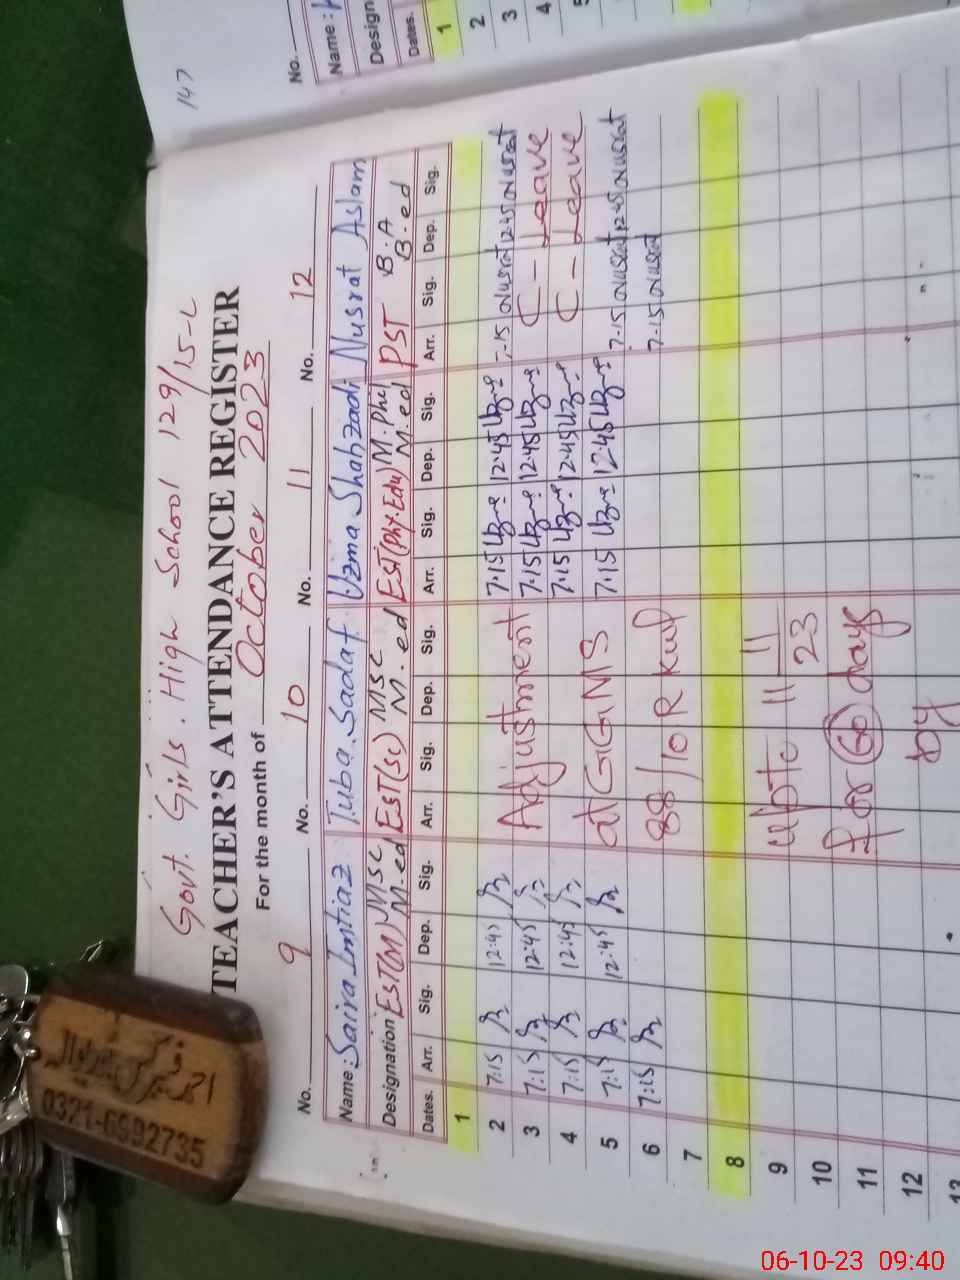 147
Govt. Girls. High School 129/15-L
TEACHER'S ATTENDANCE REGISTER
For the month of October 2023
No. 9 No. 10 No. 11 No. 12
Name: Saira Imtiaz Tuba Sadaf Uzma Shahzadi Nusrat Aslam
Designation EST(M) MSC M.ed EST(Sc) MSC M.ed EST(Phy.Edu) M.Phil M.ed PST B.A B.ed
Dates. Arr. Sig. Dep. Sig. Arr. Sig. Dep. Sig. Arr. Sig. Dep. Sig. Arr. Sig. Dep. Sig.
1
2 7:15 12:45 Adjustment 7.15 Uzma 12.45 Uzma 7.15 Nusrat 12.45 Nusrat
3 7:15 12:45 7.15 Uzma 12.45 Uzma C - Leave
4 7:15 12:45 at GGMS 7.15 Uzma 12.45 Uzma C - Leave
5 7:15 12:45 7.15 Uzma 12.45 Uzma 7.15 Nusrat 12.45 Nusrat
6 7:15 88/10R KWL 7.15 Nusrat
7
8
9 upto 11 11/23
10
11 for 60 days
12 by
13
No.
Name:
Design
Dates.
1
2
3
4
5
0321-6992735
06-10-23 09:40